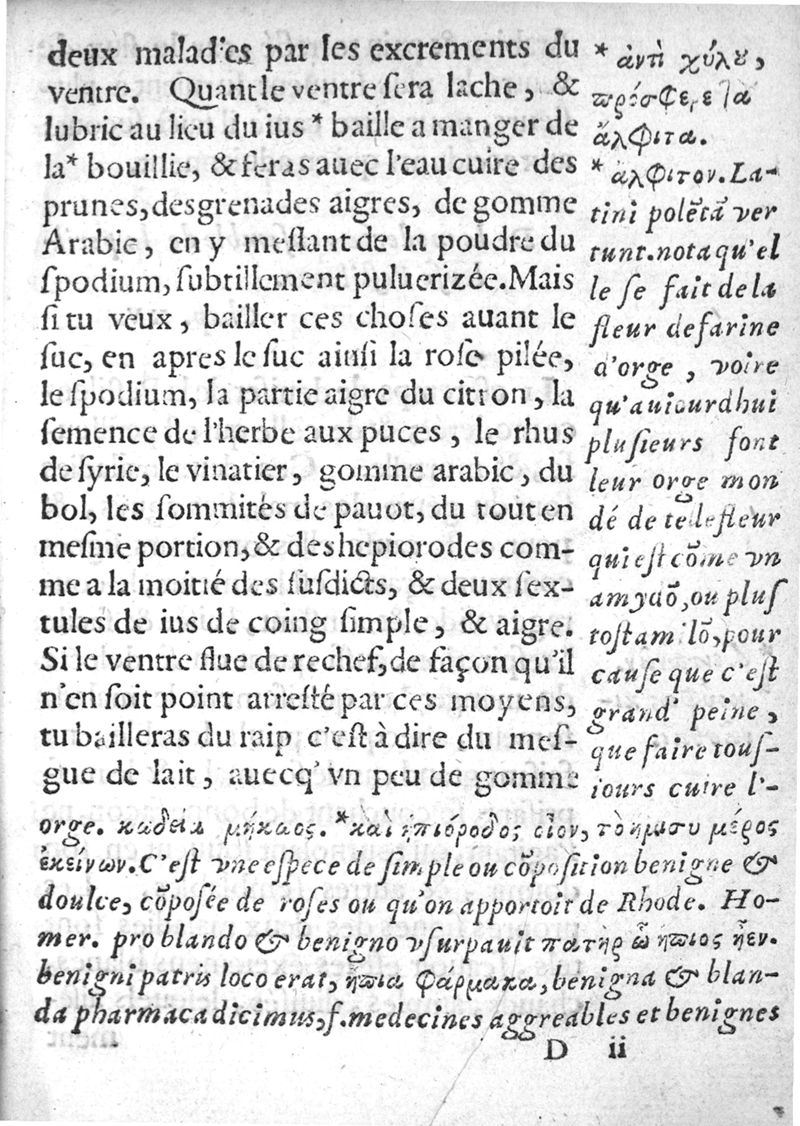 deux malades par les excrements du
ventre. Quant le ventre ſera lache, &
lubric au lieu du ius * baille a manger de
la* bouillie, & feras auec l'eau cuire des
prunes, des grenades aigres, de gomme
Arabic, en y meſlant de la poudre du
ſpodium, ſubtillement puluerizée. Mais
ſi tu veux, bailler ces choſes auant le
ſuc, en apres le ſuc ainſi la roſe pilée,
le ſpodium, la partie aigre du citron, la
ſemence de l'herbe aux puces, le rhus
de ſyrie, le vinatier, gomme arabic, du
bol, les ſommités de pauot, du tout en
meſme portion, & des hepiorodes com-
me a la moitié des ſuſdicts, & deux ſex-
tules de ius de coing ſimple, & aigre.
Si le ventre flue de rechef, de façon qu'il
n'en ſoit point arreſté par ces moyens,
tu bailleras du raip c'eſt à dire du meſ-
gue de lait, auecq' vn peu de gomme
* ἀντὶ χύλου,
πρόσφερε τὰ
ἄλφιτα.
* ἄλφιτον. La-
tini polẽtã ver
tunt. nota qu'el
le ſe fait de la
fleur de farine
d'orge, voire
qu'auiourdhui
pluſieurs font
leur orge mon
dé de telle fleur
qui eſt cõme vn
amydõ, ou pluſ
toſt am lõ, pour
cauſe que c'eſt
grand' peine,
que faire touſ-
iours cuire l'-
orge. *καὶ ἠπιόροδος οἷον, τὸ ἥμισυ μέρος
ἐκείνων. C'eſt vne eſpece de ſimple ou cõpoſition benigne &
doulce, cõpoſée de roſes ou qu'on apportoit de Rhode. Ho-
mer. pro blando & benigno vſurpauit πατὴρ ὣ ἤπιος ἦεν.
benigni patris loco erat, ἤπια φάρμακα, benigna & blan-
da pharmaca dicimus, ſ. medecines aggreables et benignes
D ii